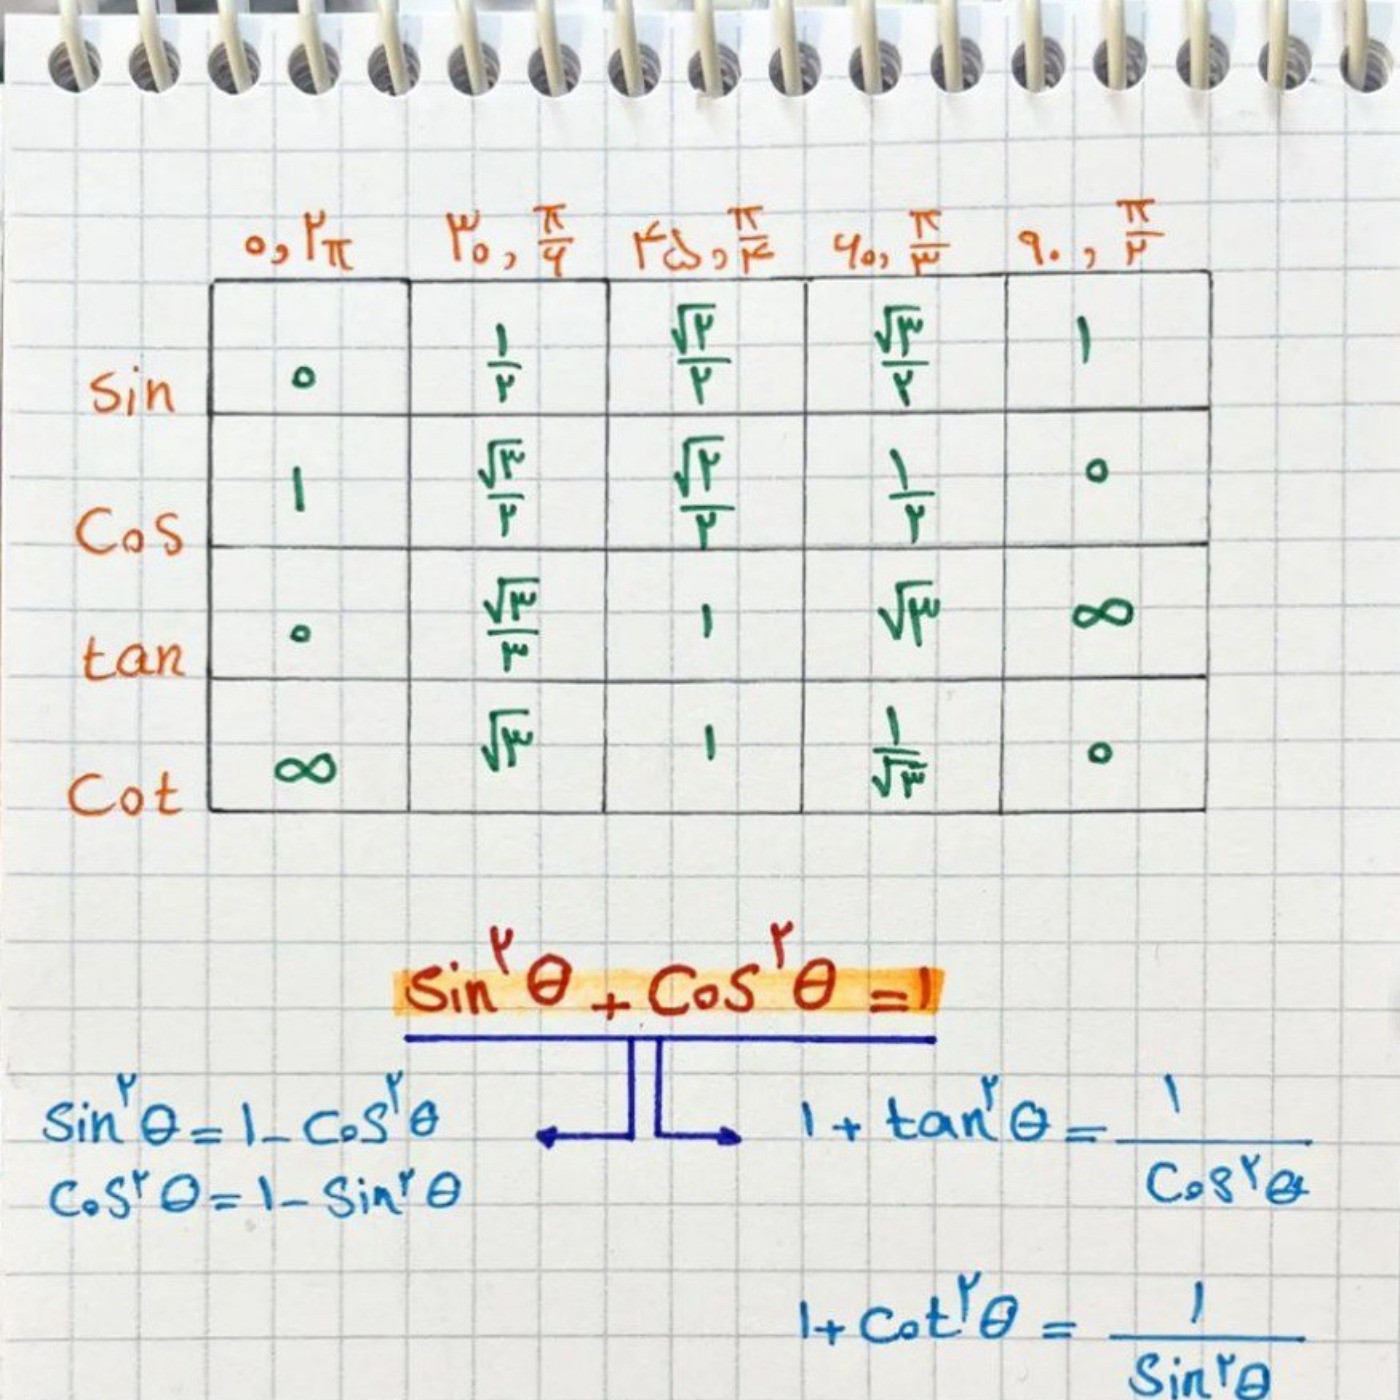 ۰, ۲π ۳۰, π/۶ ۴۵, π/۴ ۶۰, π/۳ ۹۰, π/۲
Sin ۰ ۱/۲ √۲/۲ √۳/۲ ۱
Cos ۱ √۳/۲ √۲/۲ ۱/۲ ۰
tan ۰ √۳/۳ ۱ √۳ ∞
Cot ∞ √۳ ۱ ۱/√۳ ۰
Sin^۲ θ + Cos^۲ θ = ۱
Sin^۲ θ = ۱ - Cos^۲ θ
Cos^۲ θ = ۱ - Sin^۲ θ
۱ + tan^۲ θ = ۱/Cos^۲ θ
۱ + Cot^۲ θ = ۱/Sin^۲ θ